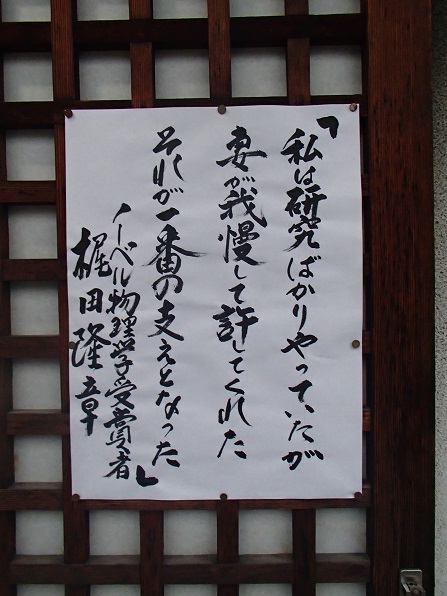 「私は研究ばかりやっていたが
妻が我慢して許してくれた
それが一番の支えとなった」
ノーベル物理学受賞者
梶田隆章